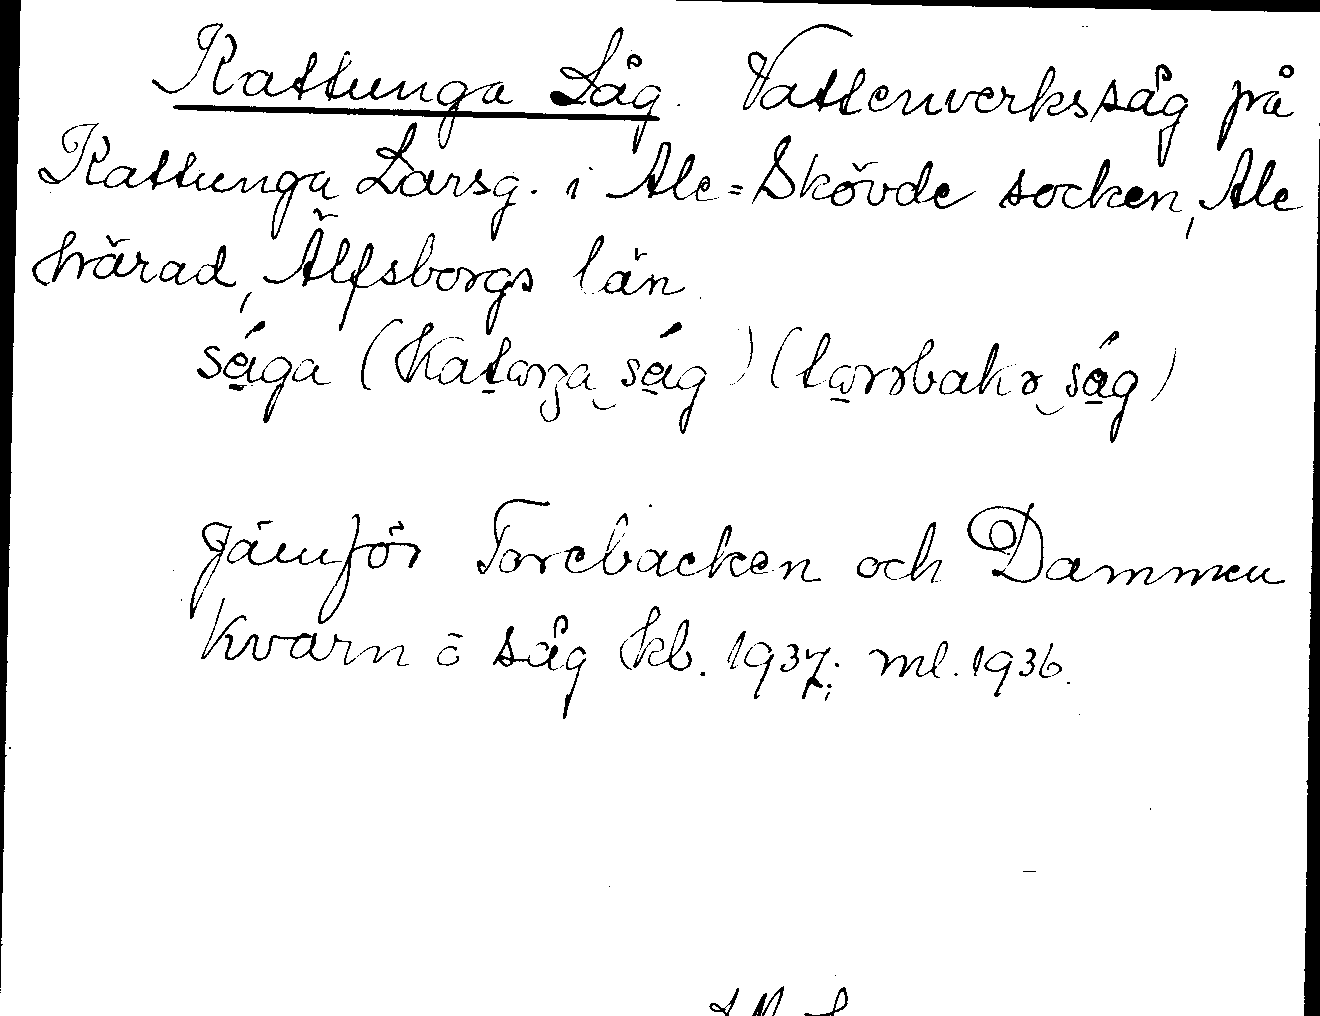 Kattunga Såg. Vattenverkssåg på
Kattunga Larsg. i Ale=Skövde socken, Ale
härad, Älfsborgs län.
såga (katoŋa såg) (torrbakr såg)
Jämför Torebacken och Dammen
Kvarn o såg kb. 1937; ml. 1936.